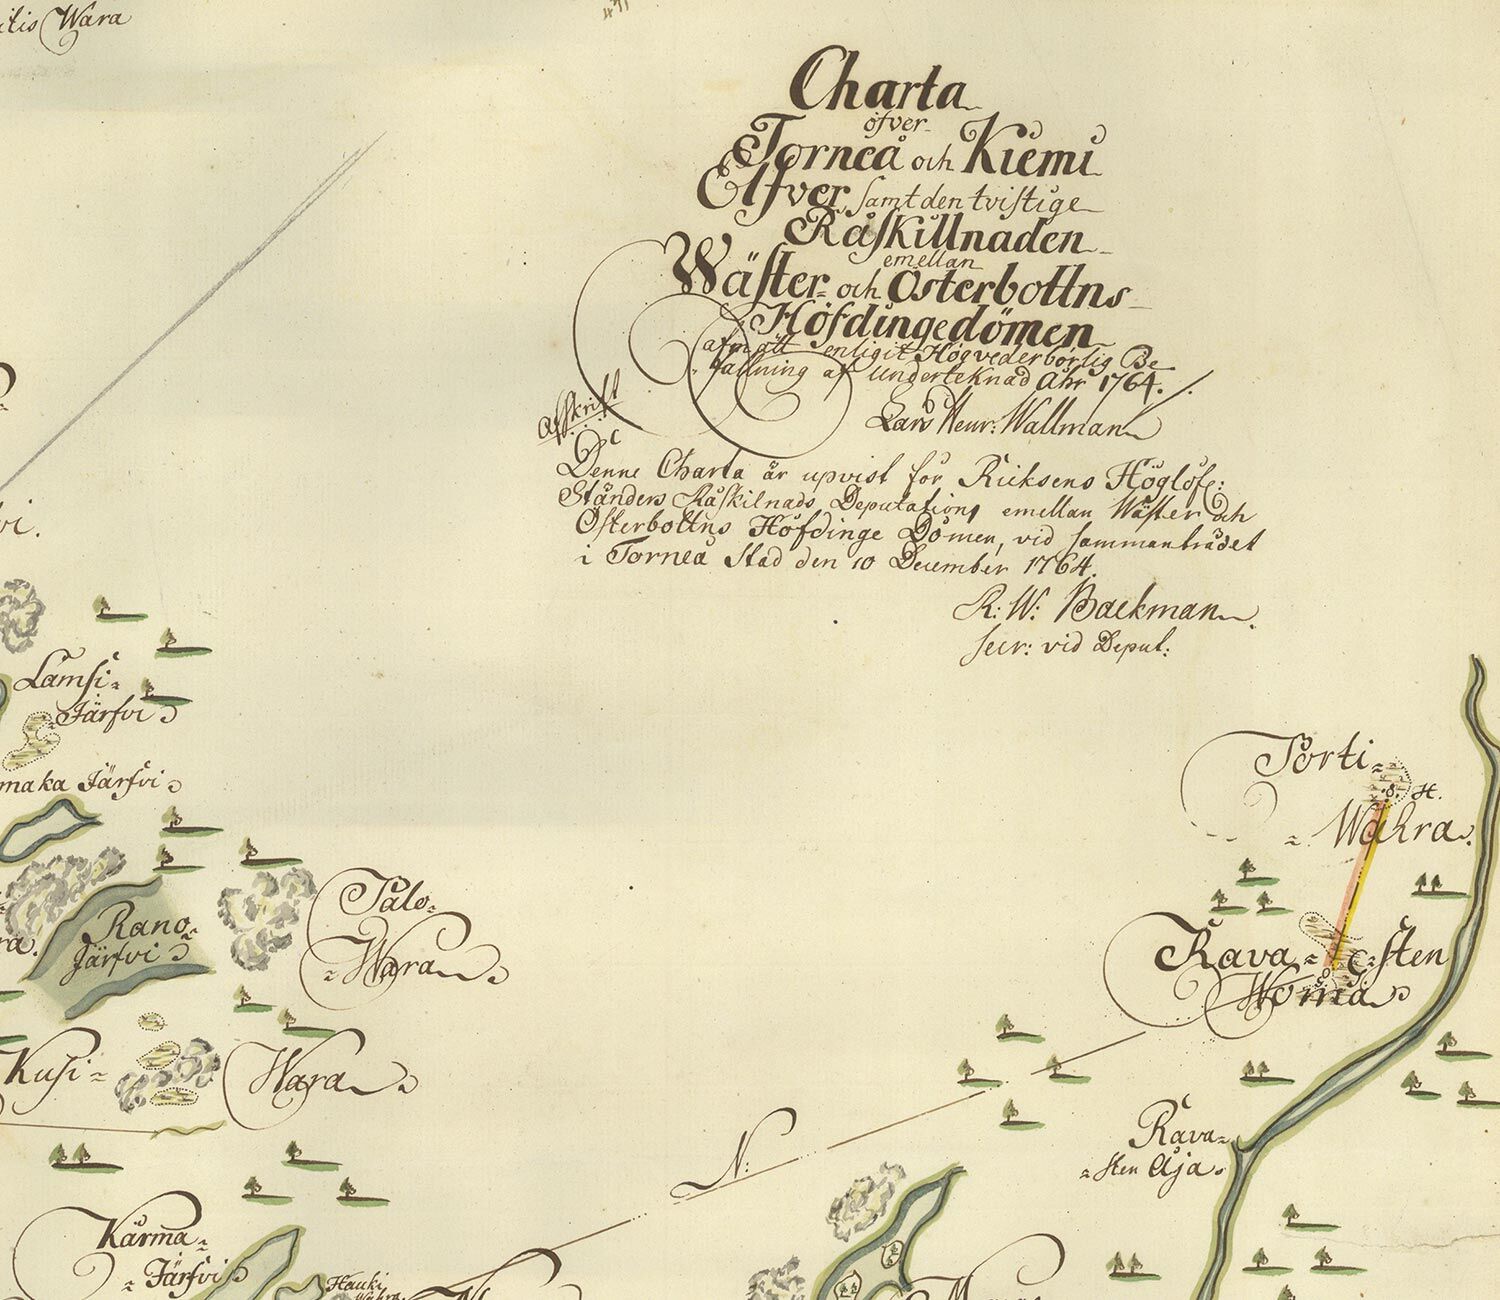 Wara
Charta
öfver
Torneå och Kiemi
Elfver samt den tvistige
Råskillnaden
emellan
Wäster- och Österbottns
Höfdingedömen
afmätt enligit Högvederbörlig Be
fallning af Underteknad Åhr 1764.
Lars Henr: Wallman
Afskrift
Denne Charta är upvist för Ricksens Höglöfl:
Ständers Råskilnads Deputation emellan Wäster och
Österbottns Höfdinge Dömen, vid sammanträdet
i Torneå Stad den 10 December 1764.
R: W: Backman
Secr: vid Deput:
vi.
Lamsi-
Järfvi
maka Järfvi
Rano-
Järfvi
ra.
Palo-
-Wara
Kusi- Wara
Karma-
-Järfvi
Hauki
N:
Porti-
-Wahra
H.
Rava-sten
Woma
Rava-
-sten Aja